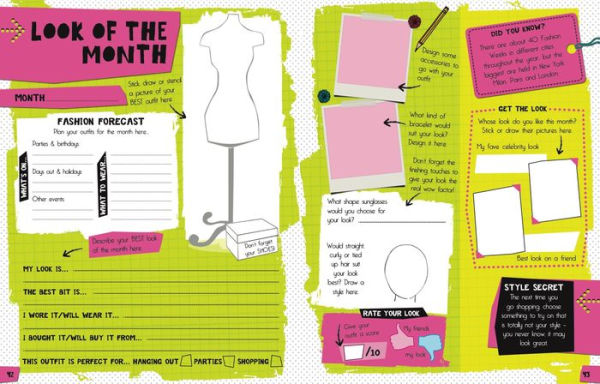 LOOK OF THE
MONTH
MONTH
Stick, draw or stencil
a picture of your
BEST outfit here.
FASHION FORECAST
Plan your outfit for the month here.
WHAT'S ON...
Parties & birthdays
Days out & holidays
Other events
WHAT TO WEAR...
Don't forget
your SHOES!
Describe your BEST look
of the month here.
MY LOOK IS...
THE BEST BIT IS...
I WORE IT/WILL WEAR IT...
I BOUGHT IT/WILL BUY IT FROM...
THIS OUTFIT IS PERFECT FOR... HANGING OUT PARTIES SHOPPING
42
Design some
accessories to
go with your
outfit
What kind of
bracelet would
suit your look?
Design it here
Don't forget the
finishing touches to
give your look the
real wow factor!
What shape sunglasses
would you choose for
your look?
Would straight
curly or tied
up hair suit
your look
best? Draw a
style here.
RATE YOUR LOOK
Give your
outfit a score
/10
My friends
my look
DID YOU KNOW?
There are about 40 Fashion
Weeks in different cities
throughout the year, but the
biggest are held in New York
Milan, Paris and London.
GET THE LOOK
Whose look do you like the month?
Stick or draw their pictures here.
My fave celebrity look
Best look on a friend
STYLE SECRET
The next time you
go shopping, choose
something to try on that
is totally not your style -
you never know, it may
look great
43